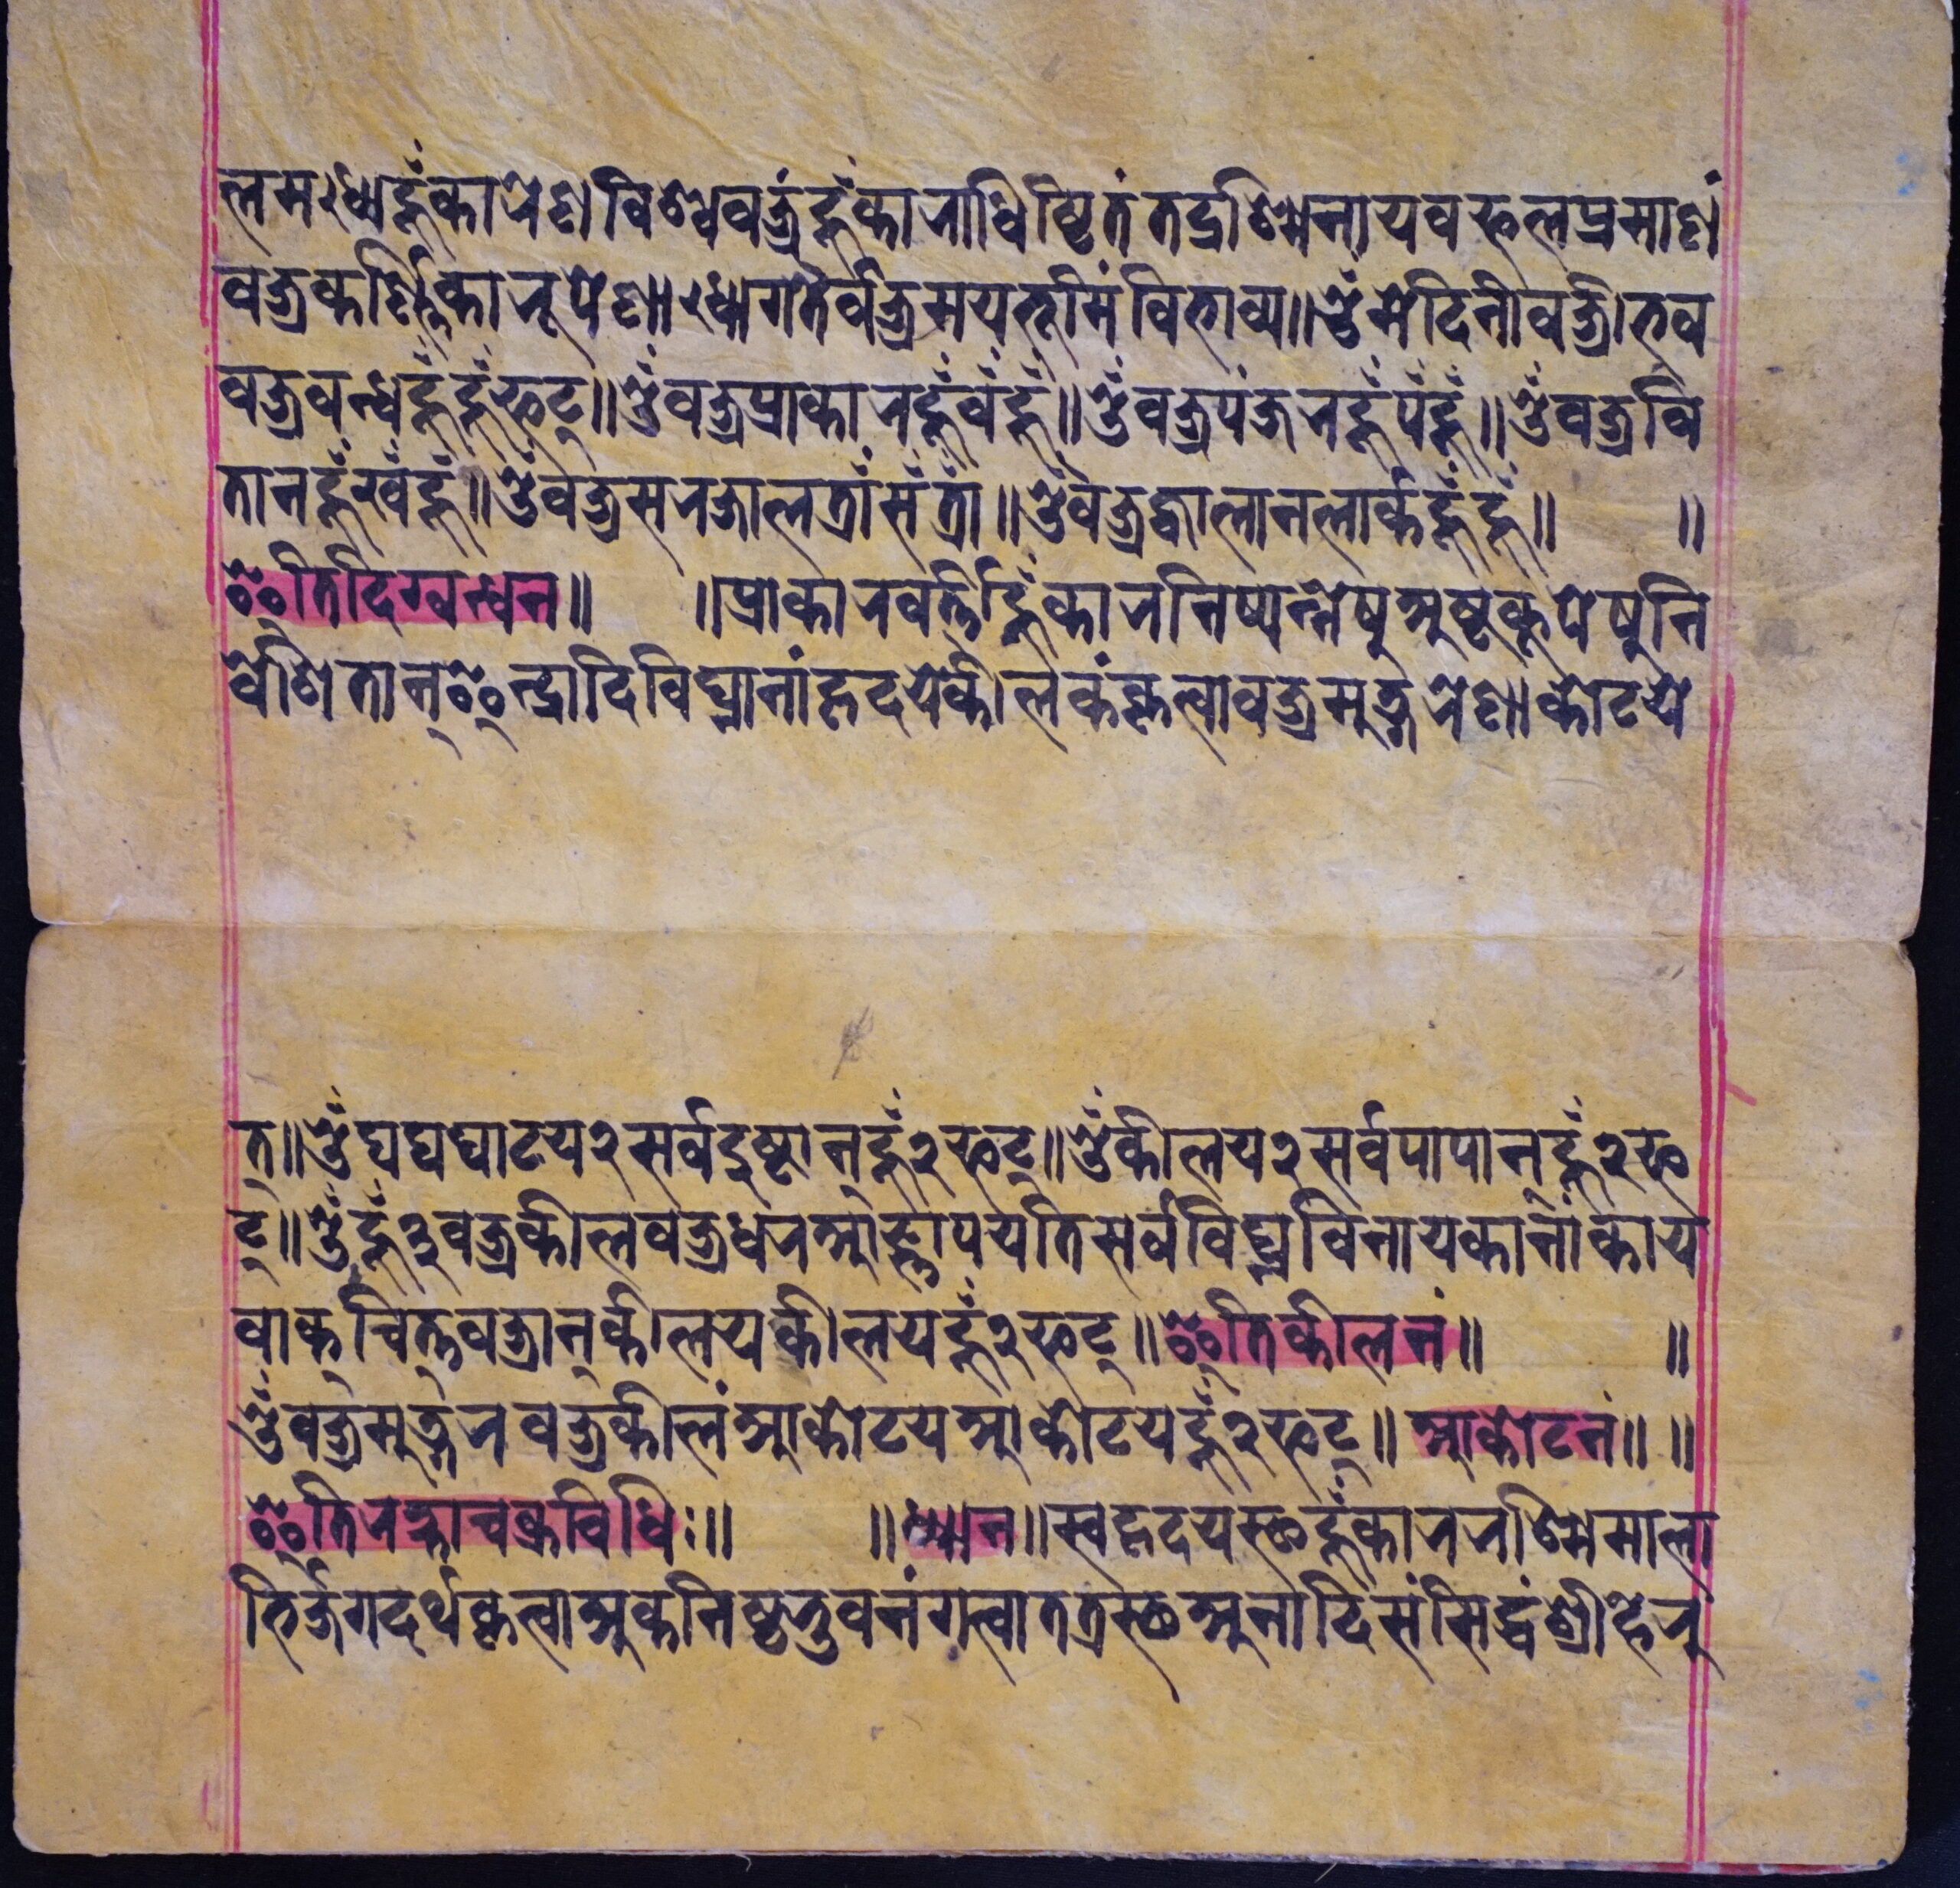 लमध्यहूँकारेण विश्ववज्रंहूँकाराधिष्ठितं तद्रश्मिनायवफलप्रमाणं
वज्रकर्ण्णिकारूपेणाधोगतैर्वज्रमयभूमिं विभाव्य॥ॐमेदिनीवज्रीभव
वज्रवन्धहूँहूँफट्॥ॐवज्रप्राकारहूँवँहूँ॥ॐवज्रपंजरहूँपँहूँ॥ॐवज्रवि
तानहूँखँहूँ॥ॐवज्रसरजालत्राँसँत्राँ॥ॐवज्रज्वालानलार्कहूँहूँ॥ ॥
इतिदिग्वन्धन॥ ॥प्राकारवर्त्तिहूँकारनिष्पन्नेषुअष्टकूपेषुनि
वेशितान्इन्द्रादिविघ्नानांहृदयेकीलकंकृत्वावज्रमुद्गरेणाकोटये
त्॥ॐघघघाटय२सर्वदुष्टान्हूँ२फट्॥ॐकीलय२सर्वपापान्हूँ२फ
ट्॥ॐहूँ३वज्रकीलवज्रधरआज्ञापयतिसर्वविघ्नविनायकानांकाय
वाक्चित्तवज्रान्कीलयकीलयहूँ२फट्॥इतिकीलनं॥ ॥
ॐवज्रमुद्गरवज्रकीलंआकोटयआकोटयहूँ२फट्॥आकोटनं॥ ॥
इतिरक्षाचक्रविधिः॥ ॥ध्यान॥स्वहृदयस्थहूँकाररश्मिमाला
भिर्जगदर्थकृत्वाअकनिष्ठभुवनंगत्वातत्रस्थअनादिसंसिद्धंश्रीहेरु